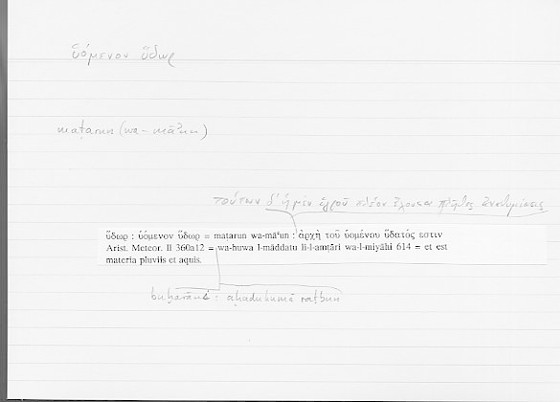 ὑόμενον ὕδωρ
maṭarun (wa-māʾun)
τούτων δ' ἡ μὲν ὑγροῦ πλέον ἔχουσα πλῆθος ἀναθυμίασις
ὕδωρ : ὑόμενον ὕδωρ = maṭarun wa-māʾun : ἀρχὴ τοῦ ὑομένου ὕδατός εστιν
Arist. Meteor. II 360a12 = wa-huwa l-māddatu li-l-amṭāri wa-l-miyāhi 614 = et est
materia pluviis et aquis.
buḫārāni : aḥaduhumā raṭbun